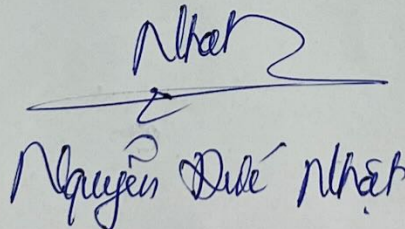 Nhat
Nguyễn Nhật